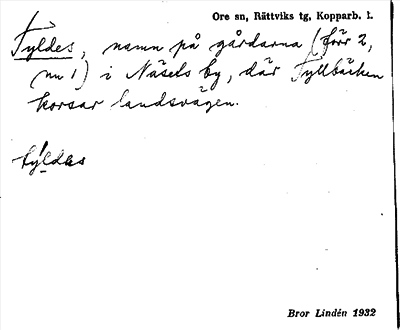 Ore sn, Rättviks tg, Kopparb. l.
Tyldes, namn på gårdarna (förr 2,
nu 1) i Näsets by, där Tyllbäcken
korsar landsvägen.
tyldas
Bror Lindén 1932